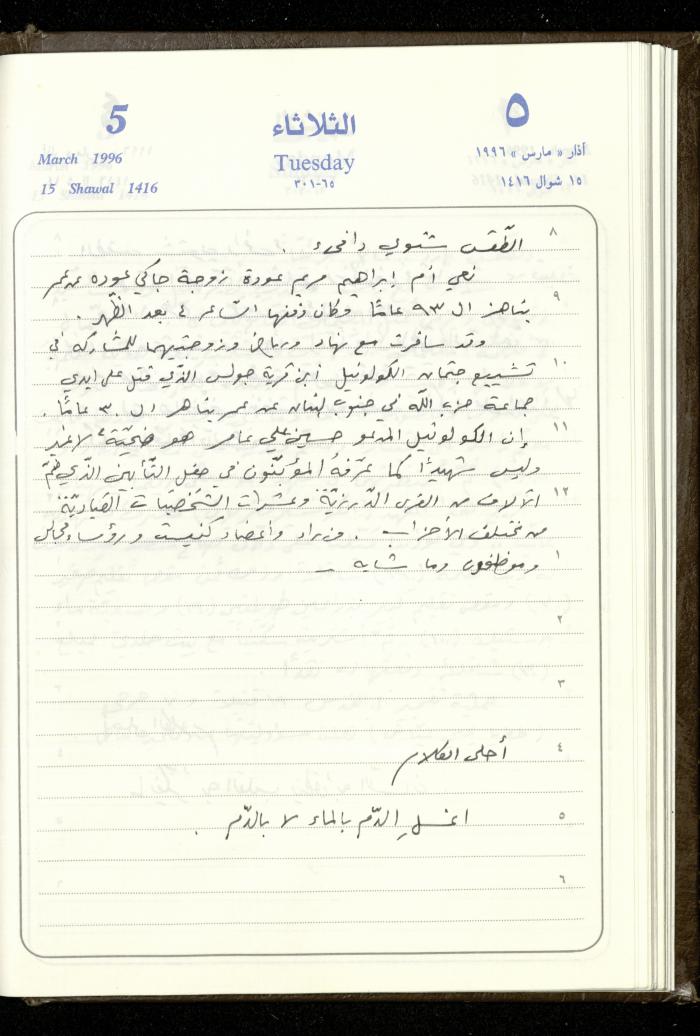 5 الثلاثاء ٥
March 1996 Tuesday أذار « مارس » ١٩٩٦
15 Shawal 1416 ٣٠١-٦٥ ١٥ شوال ١٤١٦
٨ الطّقس شتوي دافىء .
نعي أم إبراهيم مريم عودة زوجة جاكي عوده عن عمر
٩ يناهز ال ٩٣ عامًا وكان دفنها الساعه ٤ بعد الظّهر .
وقد سافرت مع نهاد ورياض وزوجتيهما للمشاركه في
١٠ تشييع جثمان الكولونيل ابن قرية جولس الذّي قتل على ايدي
جماعة حزب اللّه في جنوب لبنان عن عمر يناهز ال ٣٠ عامًا .
١١ إن الكولونيل المدعو حسين علي عامر هو ضحيّة لا غير
وليس شهيدًا كما عرّفهُ المؤبّنون في حفل التّأبين الذّي ضمّ
١٢ الآلاف من القرى الدّرزيّة وعشرات الشّخصيّات القياديّة
من مختلف الأحزاب . وزراء وأعضاء كنيست ورؤساء مجالس
١ وموظفون وما شابه _
٢
٣
٤ أحلى الكلام
٥ اغسلِ الدّم بالماء لا بالدّم .
٦